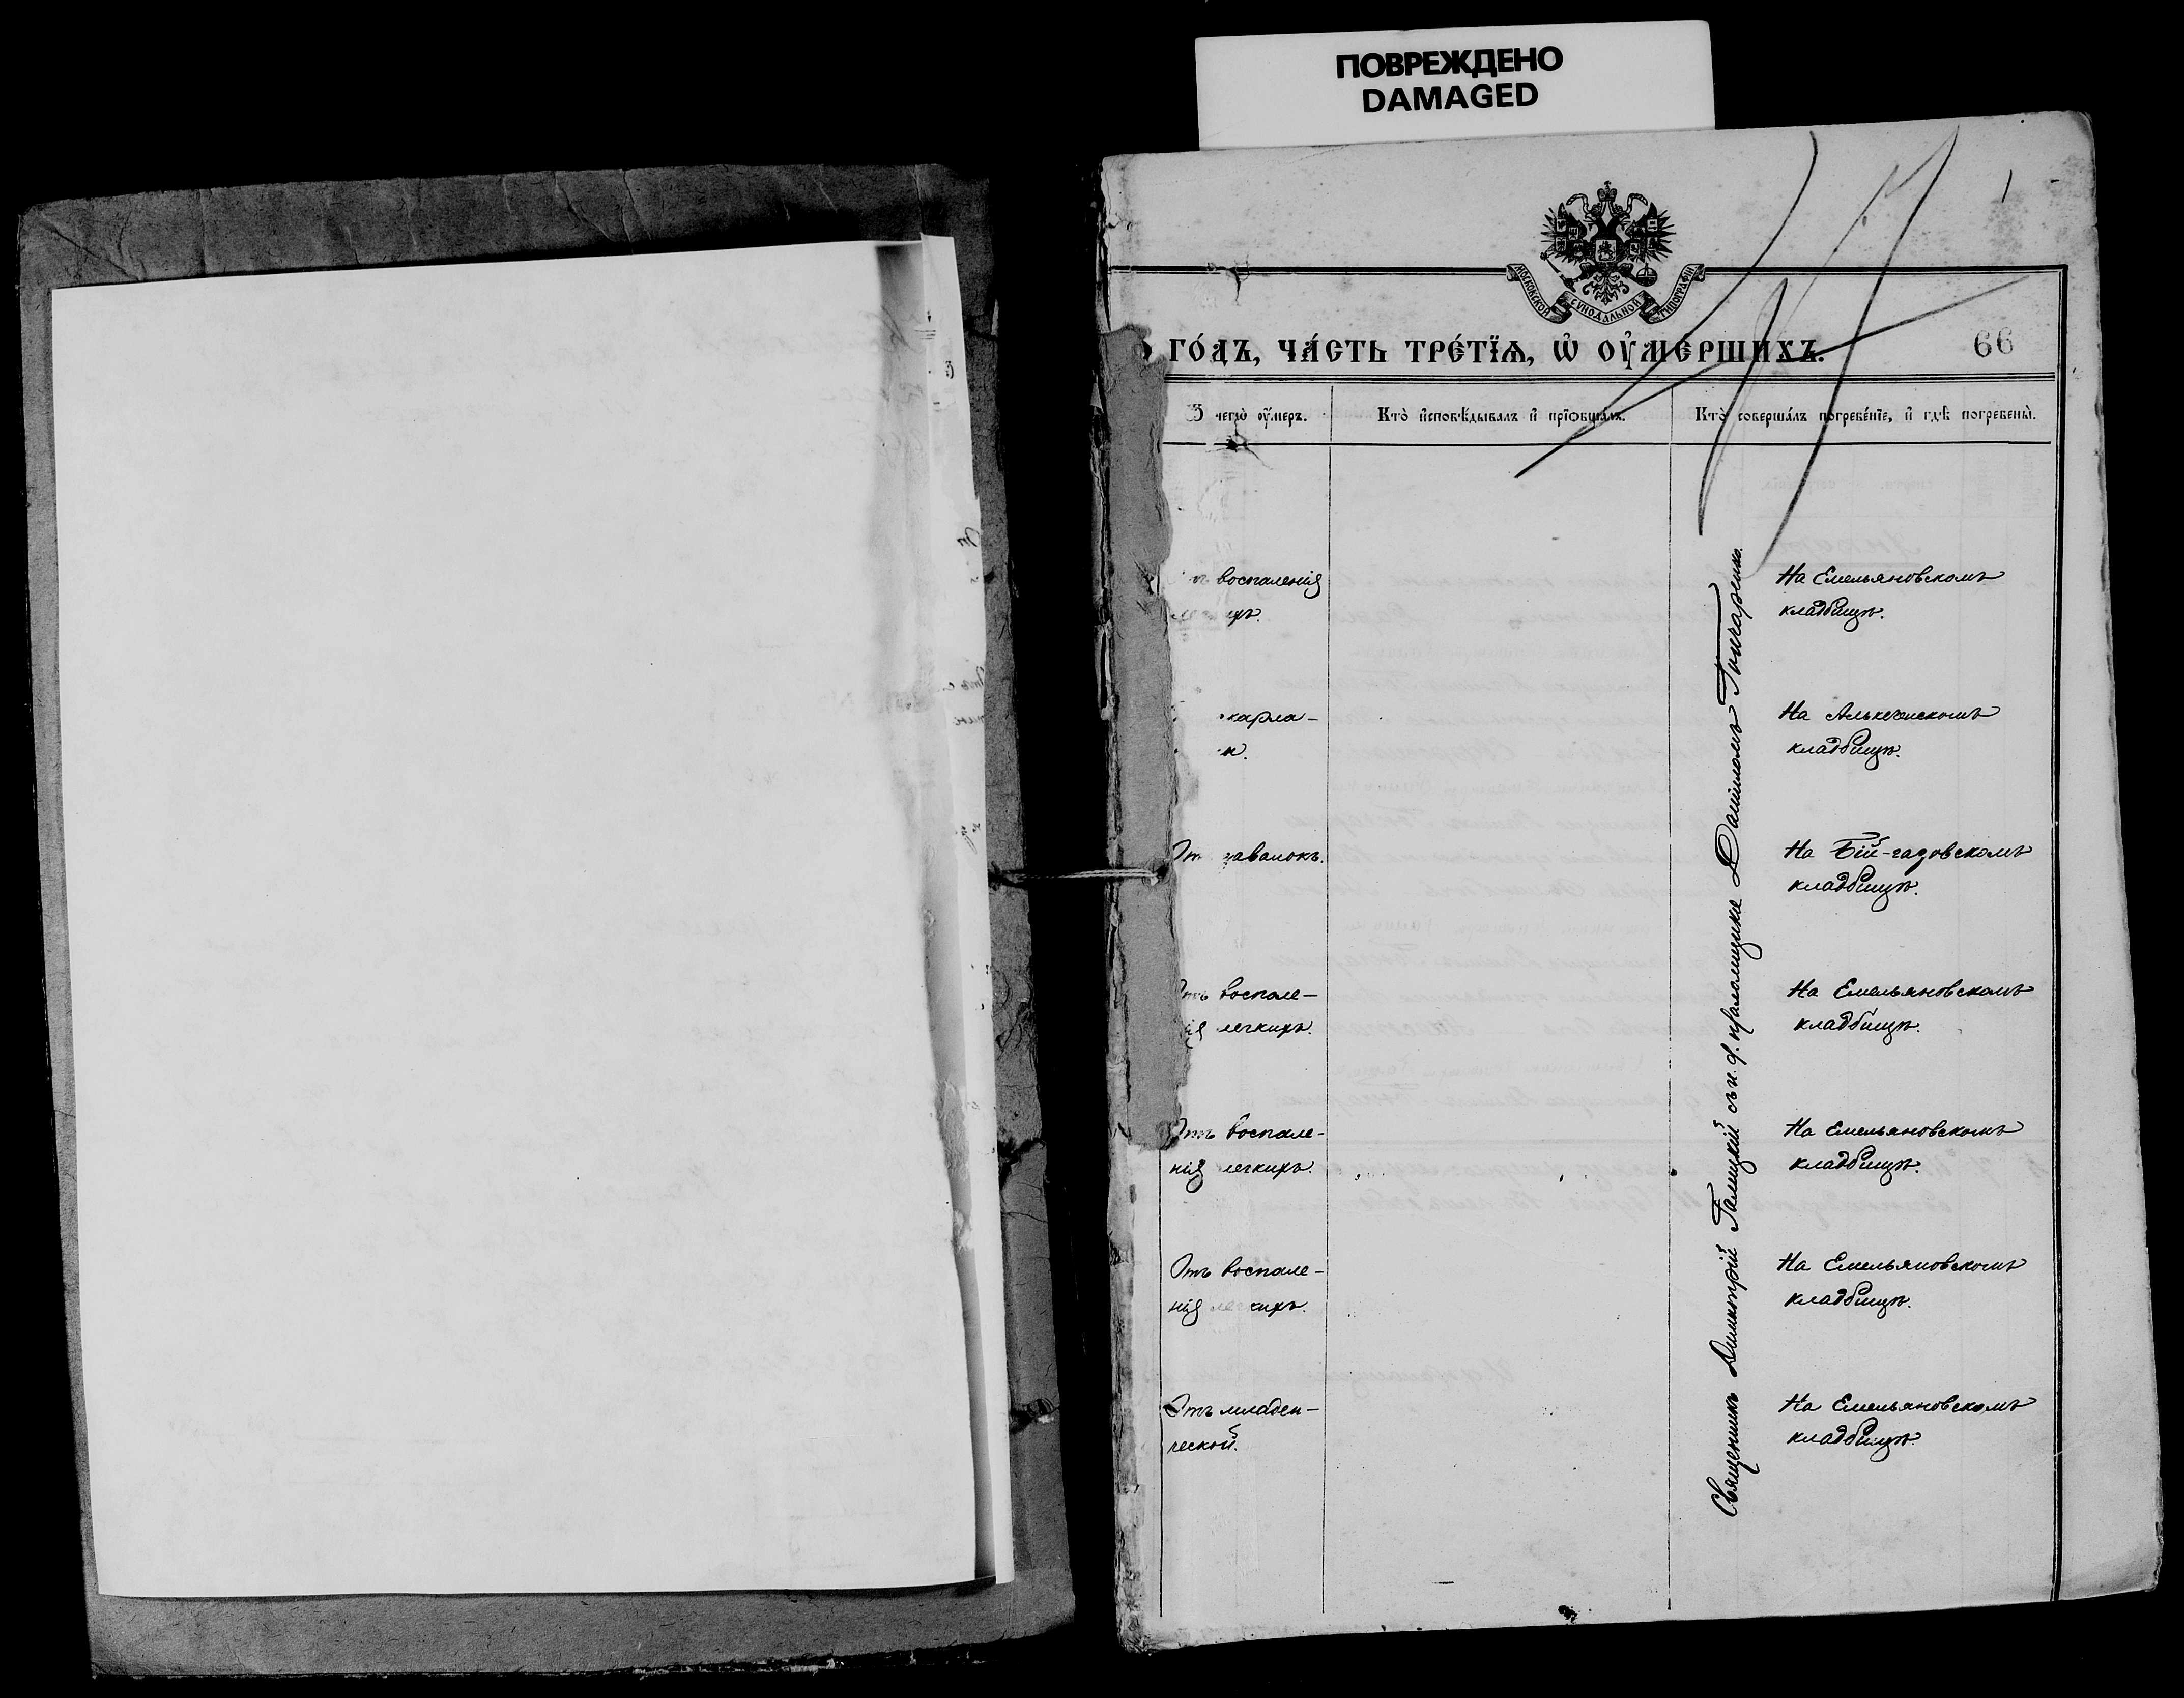 ПОВРЕЖДЕНО
DAMAGED
1
МОСКОВСКОЙ СѴНОДАЛЬНОЙ ТИПОГРАФІИ
ГО́ДЪ, ЧА́СТЬ ТРЕ́ТЇѦ, Ѡ҆ ОУ҆МЕ́РШИХЪ.
66
чегѡ̀ оу҆́меръ.
Кто̀ и҆сповѣ́дывалъ и҆ прїѡбща́лъ.
Кто̀ соверша́лъ погребе́нїе, и҆ гдѣ̀ погребены̀.
воспаленія
На Емельяновскомъ
кладбищѣ.
карла-
На Алькечинскомъ
кладбищѣ.
завалокъ.
На Бій-газовскомъ
кладбищѣ.
Отъ воспале-
нія легкихъ.
На Емельяновскомъ
кладбищѣ.
Отъ воспале-
нія легкихъ.
На Емельяновскомъ
кладбищѣ.
Отъ воспале-
нія легкихъ.
На Емельяновскомъ
кладбищѣ.
Отъ младен-
ческой.
На Емельяновскомъ
кладбищѣ.
Священникъ Димитрій Галицкій съ и. д. псаломщика Даніиломъ Гончаренко.